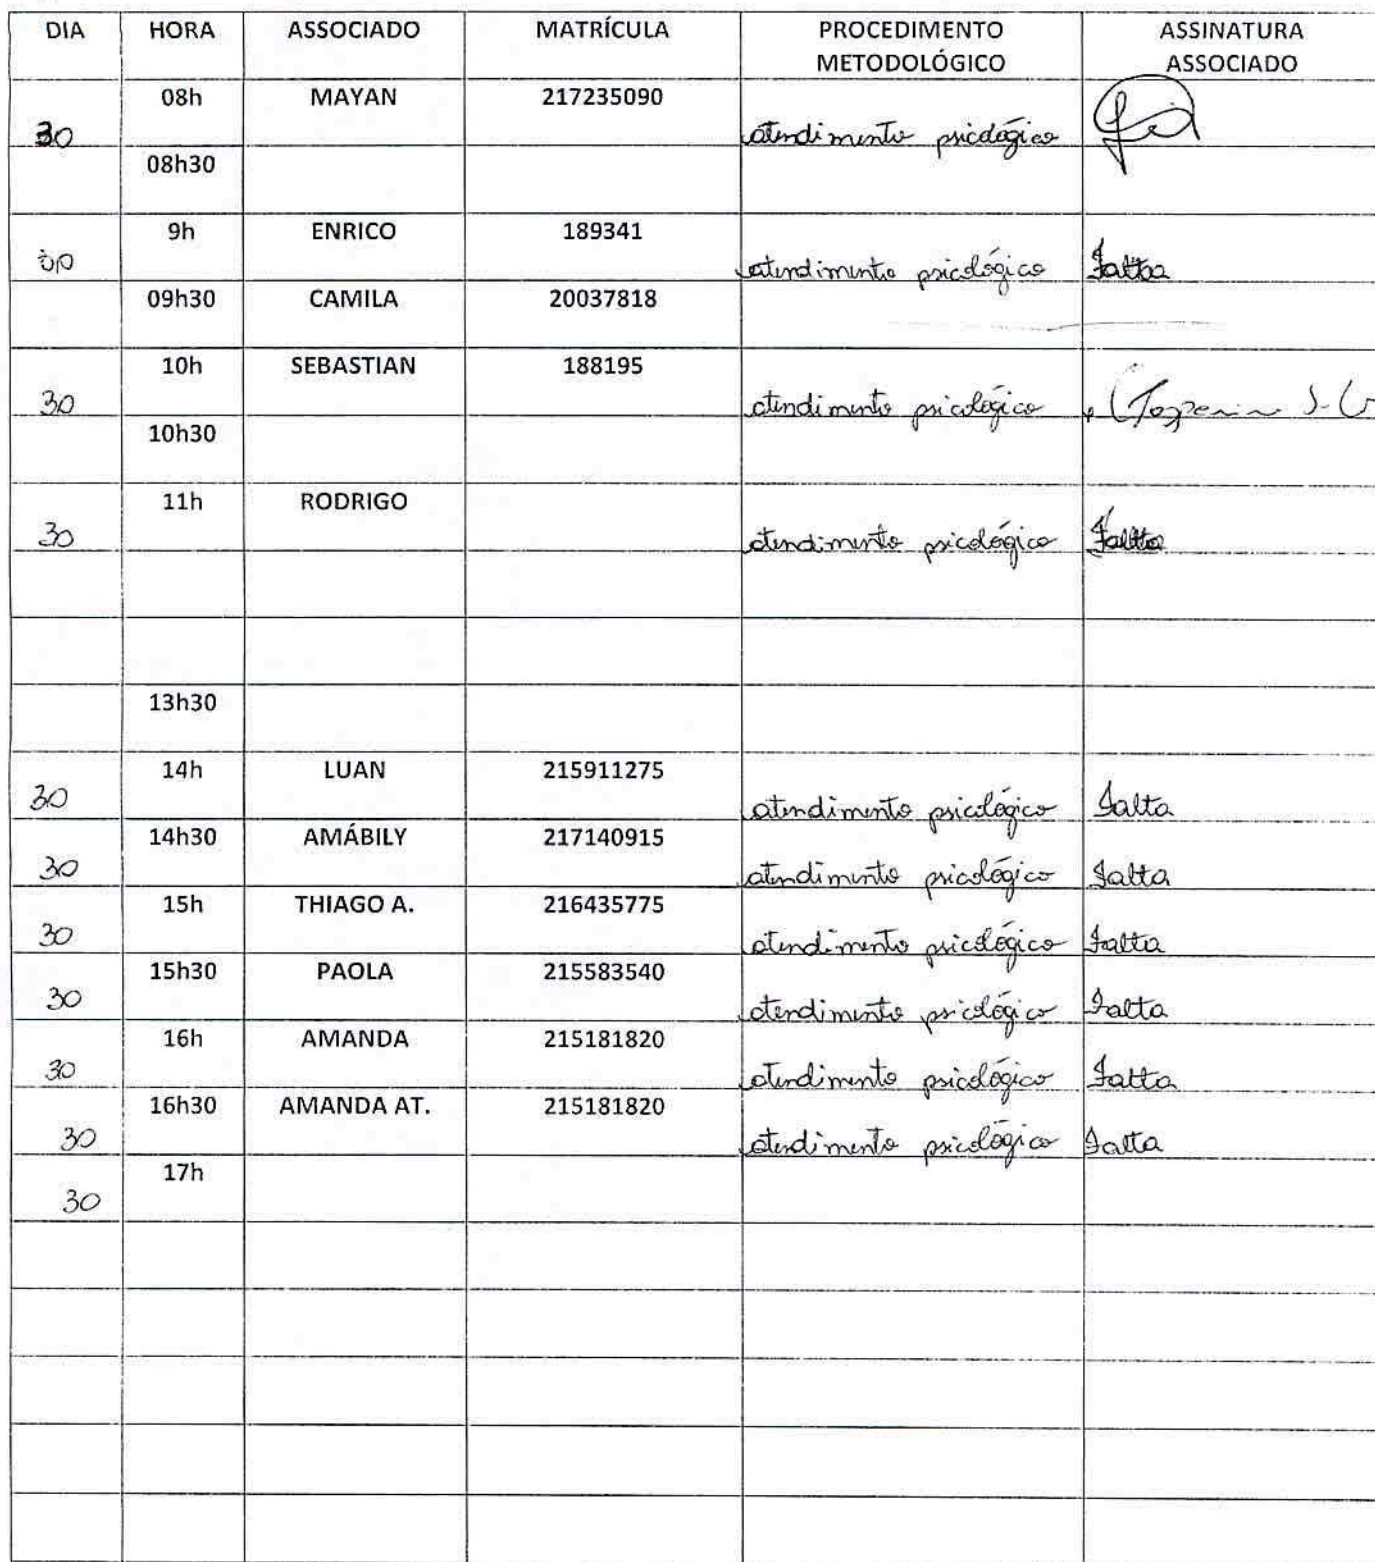 DIA HORA ASSOCIADO MATRÍCULA PROCEDIMENTO METODOLÓGICO ASSINATURA ASSOCIADO
30 08h MAYAN 217235090 atendimento psicológico
08h30
30 9h ENRICO 189341 atendimento psicológico Falta
09h30 CAMILA 20037818
30 10h SEBASTIAN 188195 atendimento psicológico
10h30
30 11h RODRIGO atendimento psicológico Falta
13h30
30 14h LUAN 215911275 atendimento psicológico Falta
30 14h30 AMÁBILY 217140915 atendimento psicológico Falta
30 15h THIAGO A. 216435775 atendimento psicológico Falta
30 15h30 PAOLA 215583540 atendimento psicológico Falta
30 16h AMANDA 215181820 atendimento psicológico Falta
30 16h30 AMANDA AT. 215181820 atendimento psicológico Falta
30 17h